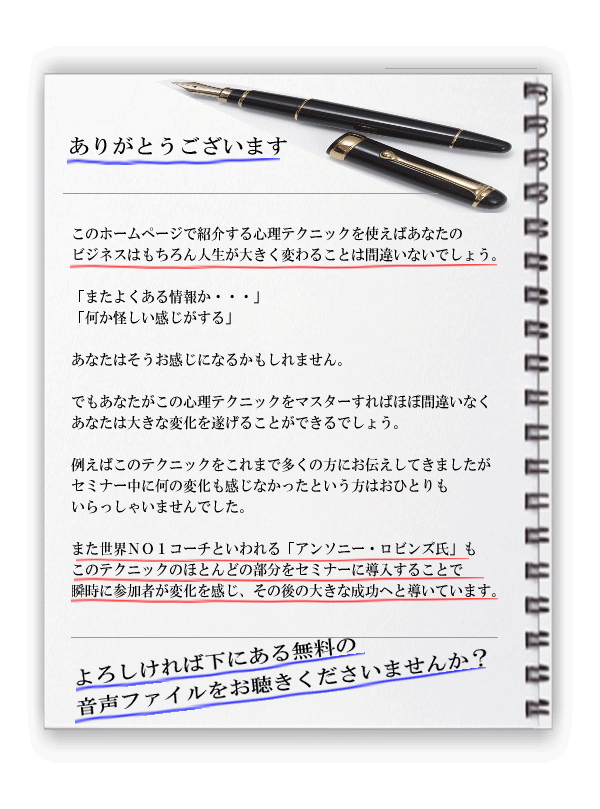 ありがとうございます
このホームページで紹介する心理テクニックを使えばあなたの
ビジネスはもちろん人生が大きく変わることは間違いないでしょう。
「またよくある情報か・・・」
「何か怪しい感じがする」
あなたはそうお感じになるかもしれません。
でもあなたがこの心理テクニックをマスターすればほぼ間違いなく
あなたは大きな変化を遂げることができるでしょう。
例えばこのテクニックをこれまで多くの方にお伝えしてきましたが
セミナー中に何の変化も感じなかったという方はおひとりも
いらっしゃいませんでした。
また世界ＮＯ１コーチといわれる「アンソニー・ロビンズ氏」も
このテクニックのほとんどの部分をセミナーに導入することで
瞬時に参加者が変化を感じ、その後の大きな成功へと導いています。
よろしければ下にある無料の
音声ファイルをお聴きくださいませんか？